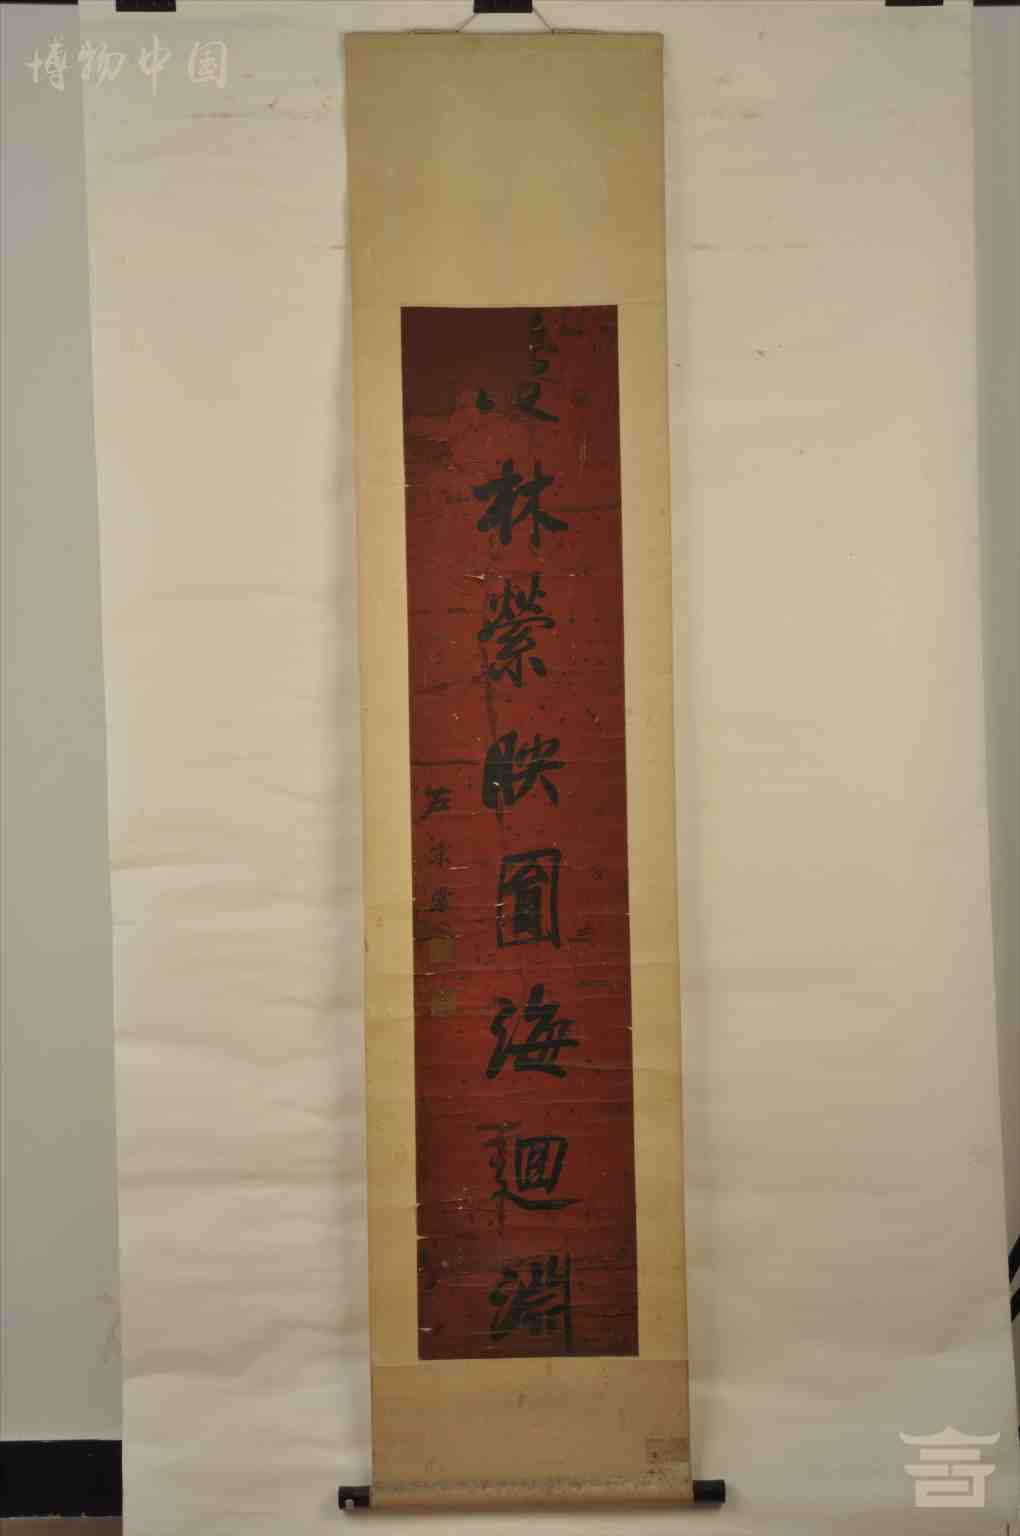 博物中国
林縈映圓海迴淵
左宗棠